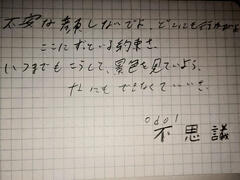 不安な顔しないでよ どこにも行かないよ
ここにずっている約束さ
いつまでもこうして、景色を見ていよう、
なにもできなくていいさ
odol
不思議